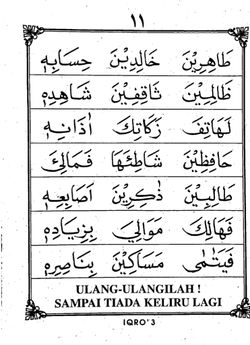 ١١
طَاهِرِيْنَ خَالِدِيْنَ حِسَابِهٖ
ظَالِمِيْنَ ثَاقِفِيْنَ شَاهِدِهٖ
لَهَاتِفَ زَكَاتِكَ اُذَانِهٖ
حَافِظِيْنَ شَاطِئِهَا فَمَالِئَ
طَالِبِيْنَ ذٰكِرِيْنَ اَصَابِعِهٖ
فَهَالِكَ مَوَالِيَ بِزِيَادِهٖ
فَيَتٰمٰى مَسَاكِيْنَ بِنَاصِرِهٖ
ULANG-ULANGILAH !
SAMPAI TIADA KELIRU LAGI
IQRO'3